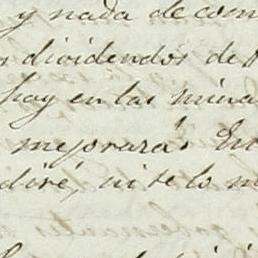 y nada de com
dividendos de
hay en las mina
mejorará. En
diré, ni te lo m